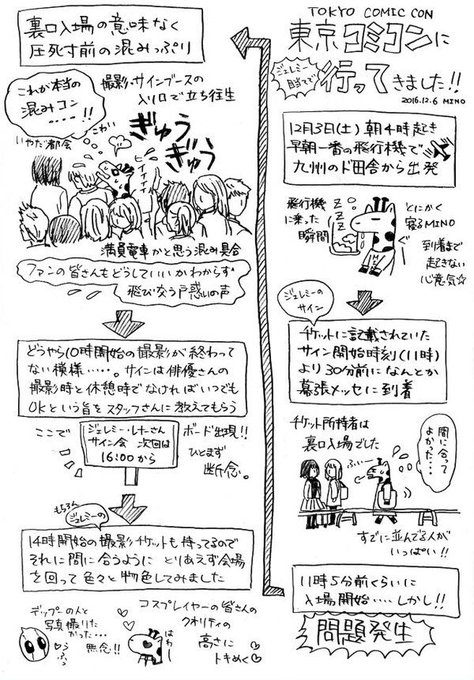 TOKYO COMIC CON
東京コミコンに
ジェレミー
当てで
行ってきました!!
2016.12.6 MINO
12月3日(土)朝4時起き
早朝一番の飛行機で
九州のド田舎から出発
飛行機
に乗った
瞬間
ZZZ
とにかく
寝るMINO
到着まで
起きない
心意気☆
ジェレミーの
サイン
チケットに記載されていた
サイン開始時刻(11時)
より30分前になんとか
幕張メッセに到着
チケット所持者は
裏口入場でした
間に合って
よかった・・・
ふぃー
すでに並んでる人が
いっぱい!!
11時5分前くらいに
入場開始・・・・しかし!!
問題発生
裏口入場の意味なく
圧死寸前の混みっぷり
これが本当の
混みコン
・・・・!!
撮影・サインブースの
入り口で立ち往生
いやだ都会
こわい
ぎゅう
ぎゅう
満員電車かと思う混み具合
ファンの皆さんもどうしていいかわからず
飛び交う戸惑いの声
どうやら10時開始の撮影が終わって
ない模様・・・・・。サインは俳優さんの
撮影時と休憩時でなければいつでも
OKという旨をスタッフさんに教えてもらう
ここで
ジェレミー・レナーさん
サイン会 次回は
16:00から
ボード出現!!
ひとまず
断念。
もちろん
ジェレミーの
14時開始の撮影チケットも持ってるので
それに間に合うように とりあえず会場
を回って色々と物色してみました
デップーの人と
写真撮りた
かった・・・
無念!!
コスプレイヤーの皆さんの
クオリティの
高さに
トキめく♡
はわー